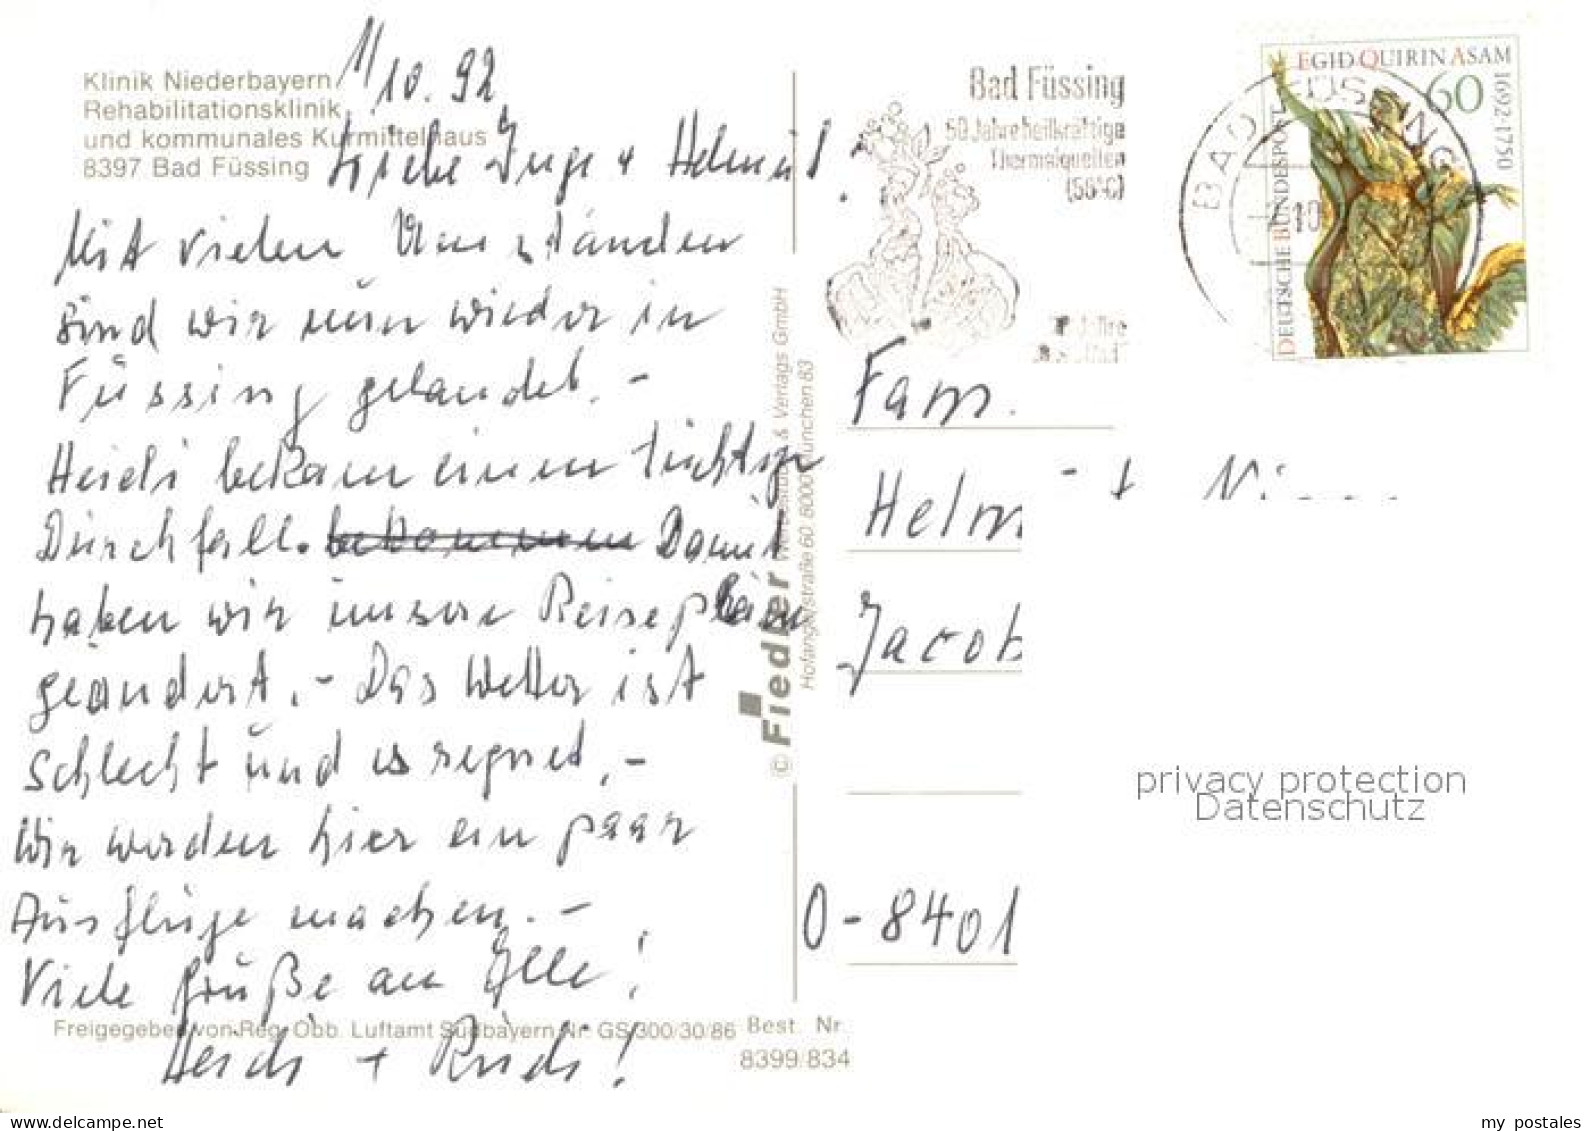 Klinik Niederbayern
Rehabilitationsklinik
und kommunales Kurmittelhaus
8397 Bad Füssing
1/10.92
Liebe Inge + Helmut.
Mit vielen Umständen
sind wir nun wieder in
Füssing gelandet. -
Heidi bekam einen tüchtigen
Durchfall. bekommen Damit
haben wir unsere Reisepläne
geändert. - Das Wetter ist
schlecht und es regnet. -
Wir werden hier ein paar
Ausflüge machen. -
Viele Grüße an Alle!
Heidi + Rudi!
Freigegeben von Reg. Obb. Luftamt Südbayern Nr. GS 300/30/86
Best. Nr.
8399/834
© Fiedler Werbestudio & Verlags GmbH
Hofangerstraße 60 8000 München 83
Bad Füssing
50 Jahre heilkräftige
Thermalquellen
(56°C)
BAD FÜSSING
10
EGID QUIRIN ASAM
1692-1750
60
DEUTSCHE BUNDESPOST
Fam.
Helm
Jacob
O-8401
privacy protection
Datenschutz
my postales